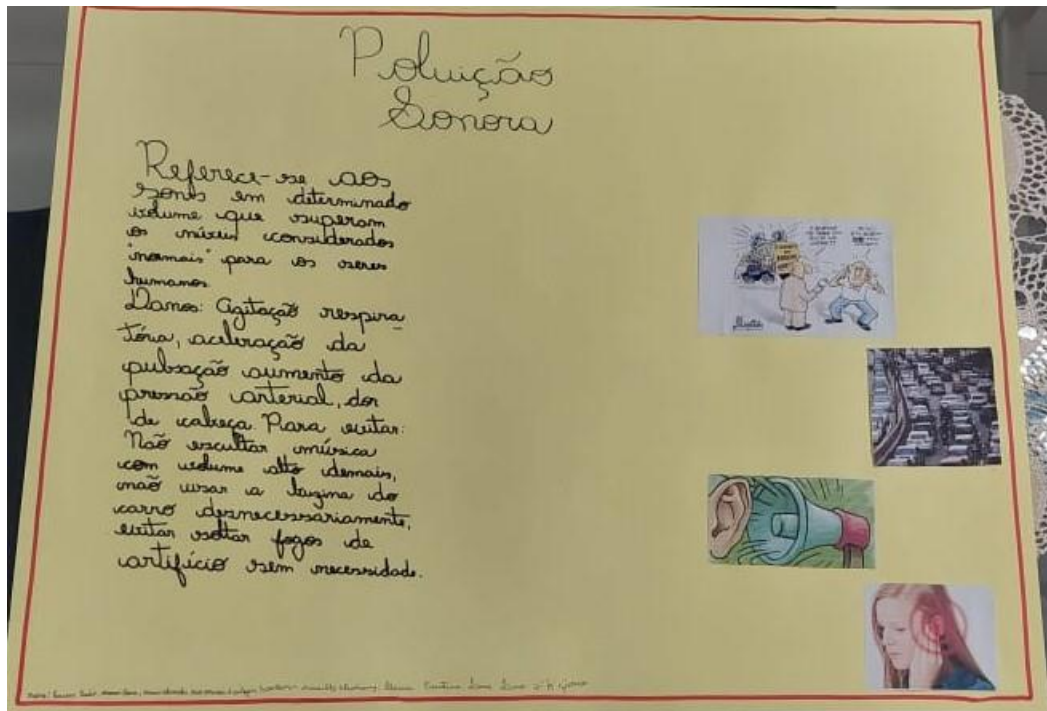 Poluição
Sonora
Referece-se aos
sons em determinado
volume que superam
os níveis considerados
"normais" para os seres
humanos.
Danos: Agitação respira-
tória, aceleração da
pulsação aumento da
pressão arterial, dor
de cabeça. Para evitar:
Não escultar música
com volume alto demais,
não usar a buzina do
carro desnecessariamente,
evitar soltar fogos de
artifício sem necessidade.